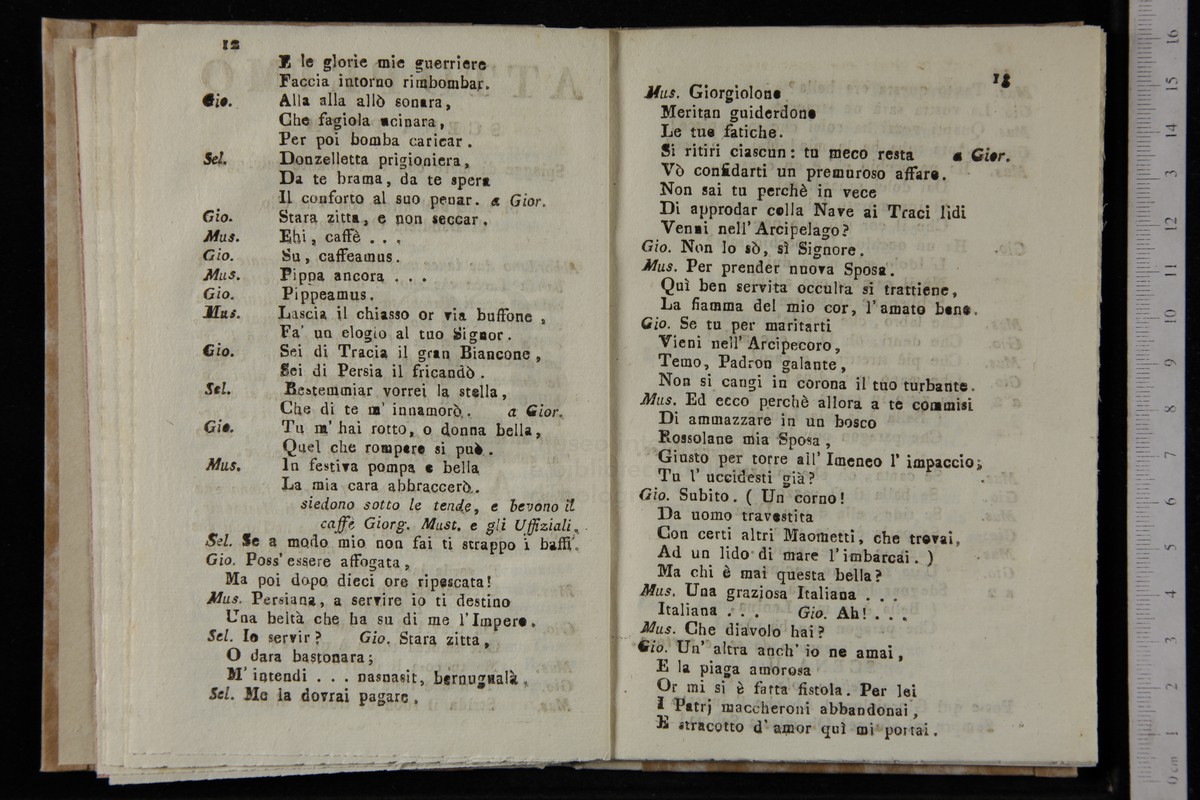 12
E le glorie mie guerriere
Faccia intorno rimbombar.
Gio. Alla alla allò sonara,
Che fagiola ucinara,
Per poi bomba caricar.
Sel. Donzelletta prigioniera,
Da te brama, da te spera
Il conforto al suo penar. a Gior.
Gio. Stara zitta, e non seccar.
Mus. Ehi, caffè . . .
Gio. Su, caffeamus.
Mus. Pippa ancora . . .
Gio. Pippeamus.
Mus. Lascia il chiasso or via buffone,
Fa' un elogio al tuo Signor.
Gio. Sei di Tracia il gran Biancone,
Sei di Persia il fricandò.
Sel. Bestemmiar vorrei la stella,
Che di te m' innamorò. a Gior.
Gio. Tu m' hai rotto, o donna bella,
Quel che rompere si può.
Mus. In festiva pompa e bella
La mia cara abbraccerò.
siedono sotto le tende, e bevono il
caffè Giorg. Must. e gli Uffiziali.
Sel. Se a modo mio non fai ti strappo i baffi.
Gio. Poss' essere affogata,
Ma poi dopo dieci ore ripescata!
Mus. Persiana, a servire io ti destino
Una beltà che ha su di me l'Impero.
Sel. Io servir? Gio. Stara zitta,
O dara bastonara;
M' intendi . . . nasnasit, bernugualà.
Sel. Me la dovrai pagare.
13
Mus. Giorgiolone
Meritan guiderdone
Le tue fatiche.
Si ritiri ciascun: tu meco resta a Gior.
Vò confidarti un premuroso affare.
Non sai tu perchè in vece
Di approdar colla Nave ai Traci lidi
Venni nell' Arcipelago?
Gio. Non lo sò, sì Signore.
Mus. Per prender nuova Sposa.
Quì ben servita occulta si trattiene,
La fiamma del mio cor, l'amato bene.
Gio. Se tu per maritarti
Vieni nell' Arcipecoro,
Temo, Padron galante,
Non si cangi in corona il tuo turbante.
Mus. Ed ecco perchè allora a te commisi
Di ammazzare in un bosco
Rossolane mia Sposa,
Giusto per torre all' Imeneo l' impaccio;
Tu l' uccidesti già?
Gio. Subito. ( Un corno!
Da uomo travestita
Con certi altri Maometti, che trovai,
Ad un lido di mare l'imbarcai. )
Ma chi è mai questa bella?
Mus. Una graziosa Italiana . . .
Italiana . . . Gio. Ah! . . .
Mus. Che diavolo hai?
Gio. Un' altra anch' io ne amai,
E la piaga amorosa
Or mi si è fatta fistola. Per lei
I Patrj maccheroni abbandonai,
E stracotto d' amor quì mi portai.